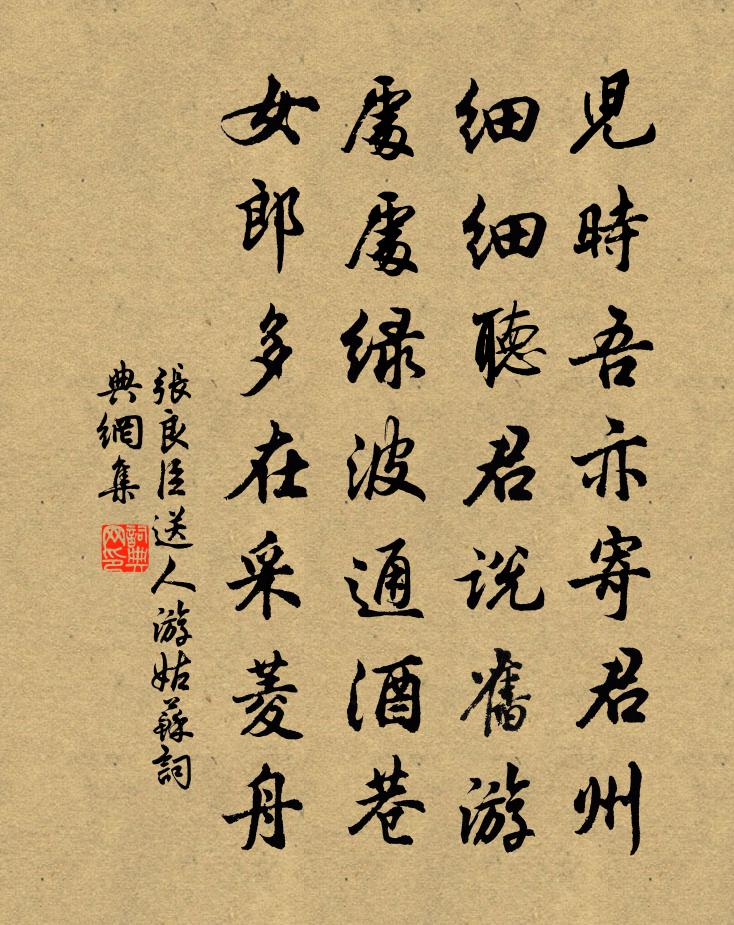 兒時吾亦寄君州
細細聽君説舊游
處處緑波通酒巷
女郎多在采菱舟
張良臣送人游姑蘇詞
典網集
詞典
网印